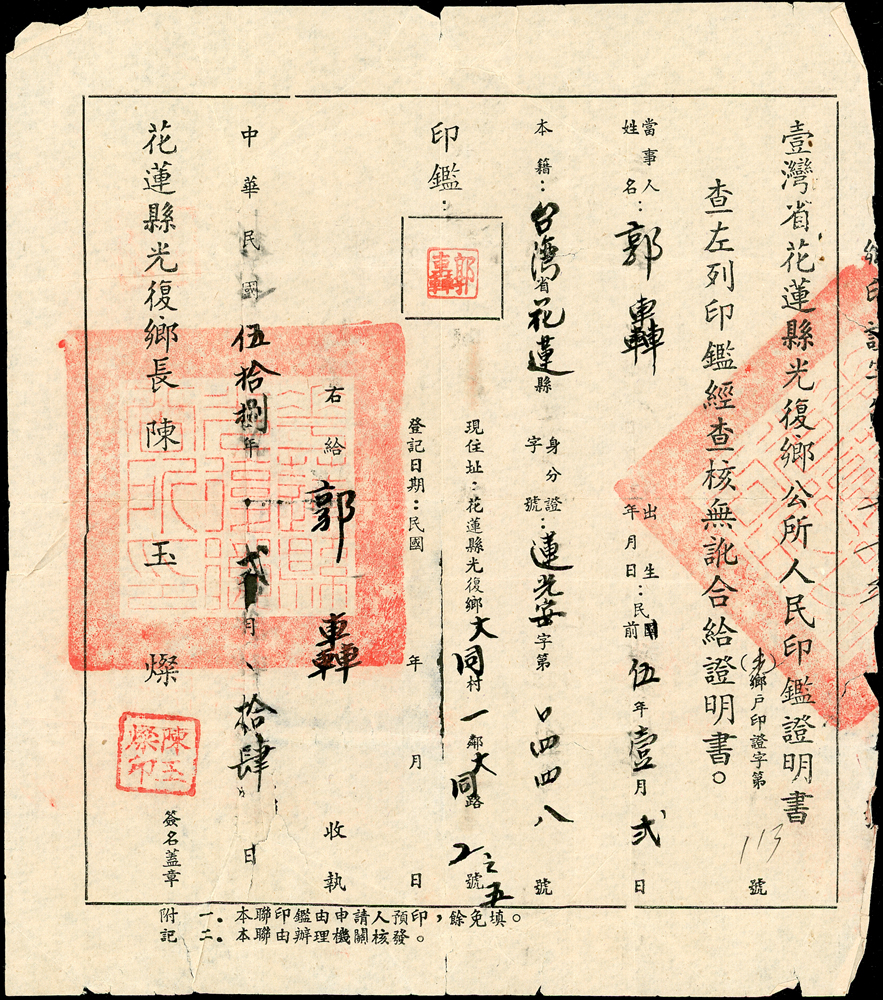 壹灣省花蓮縣光復鄉公所人民印鑑證明書
(光)鄉戶印證字第113號
查左列印鑑經查核無訛合給證明書。
當事人姓名：郭轟
出生年月日：民國前伍年壹月弍日
本籍：台湾省花蓮縣
身分證字號：蓮光安字第口四四八號
現住址：花蓮縣光復鄉大同村一鄰大同路2之五號
印鑑：
登記日期：民國 年 月 日
右給 郭轟 收執
中華民國伍拾捌年弍月拾肆日
花蓮縣光復鄉長 陳玉燦
陳玉燦印
簽名蓋章
附記 一．本聯印鑑由申請人預印，餘免填。
二．本聯由辦理機關核發。